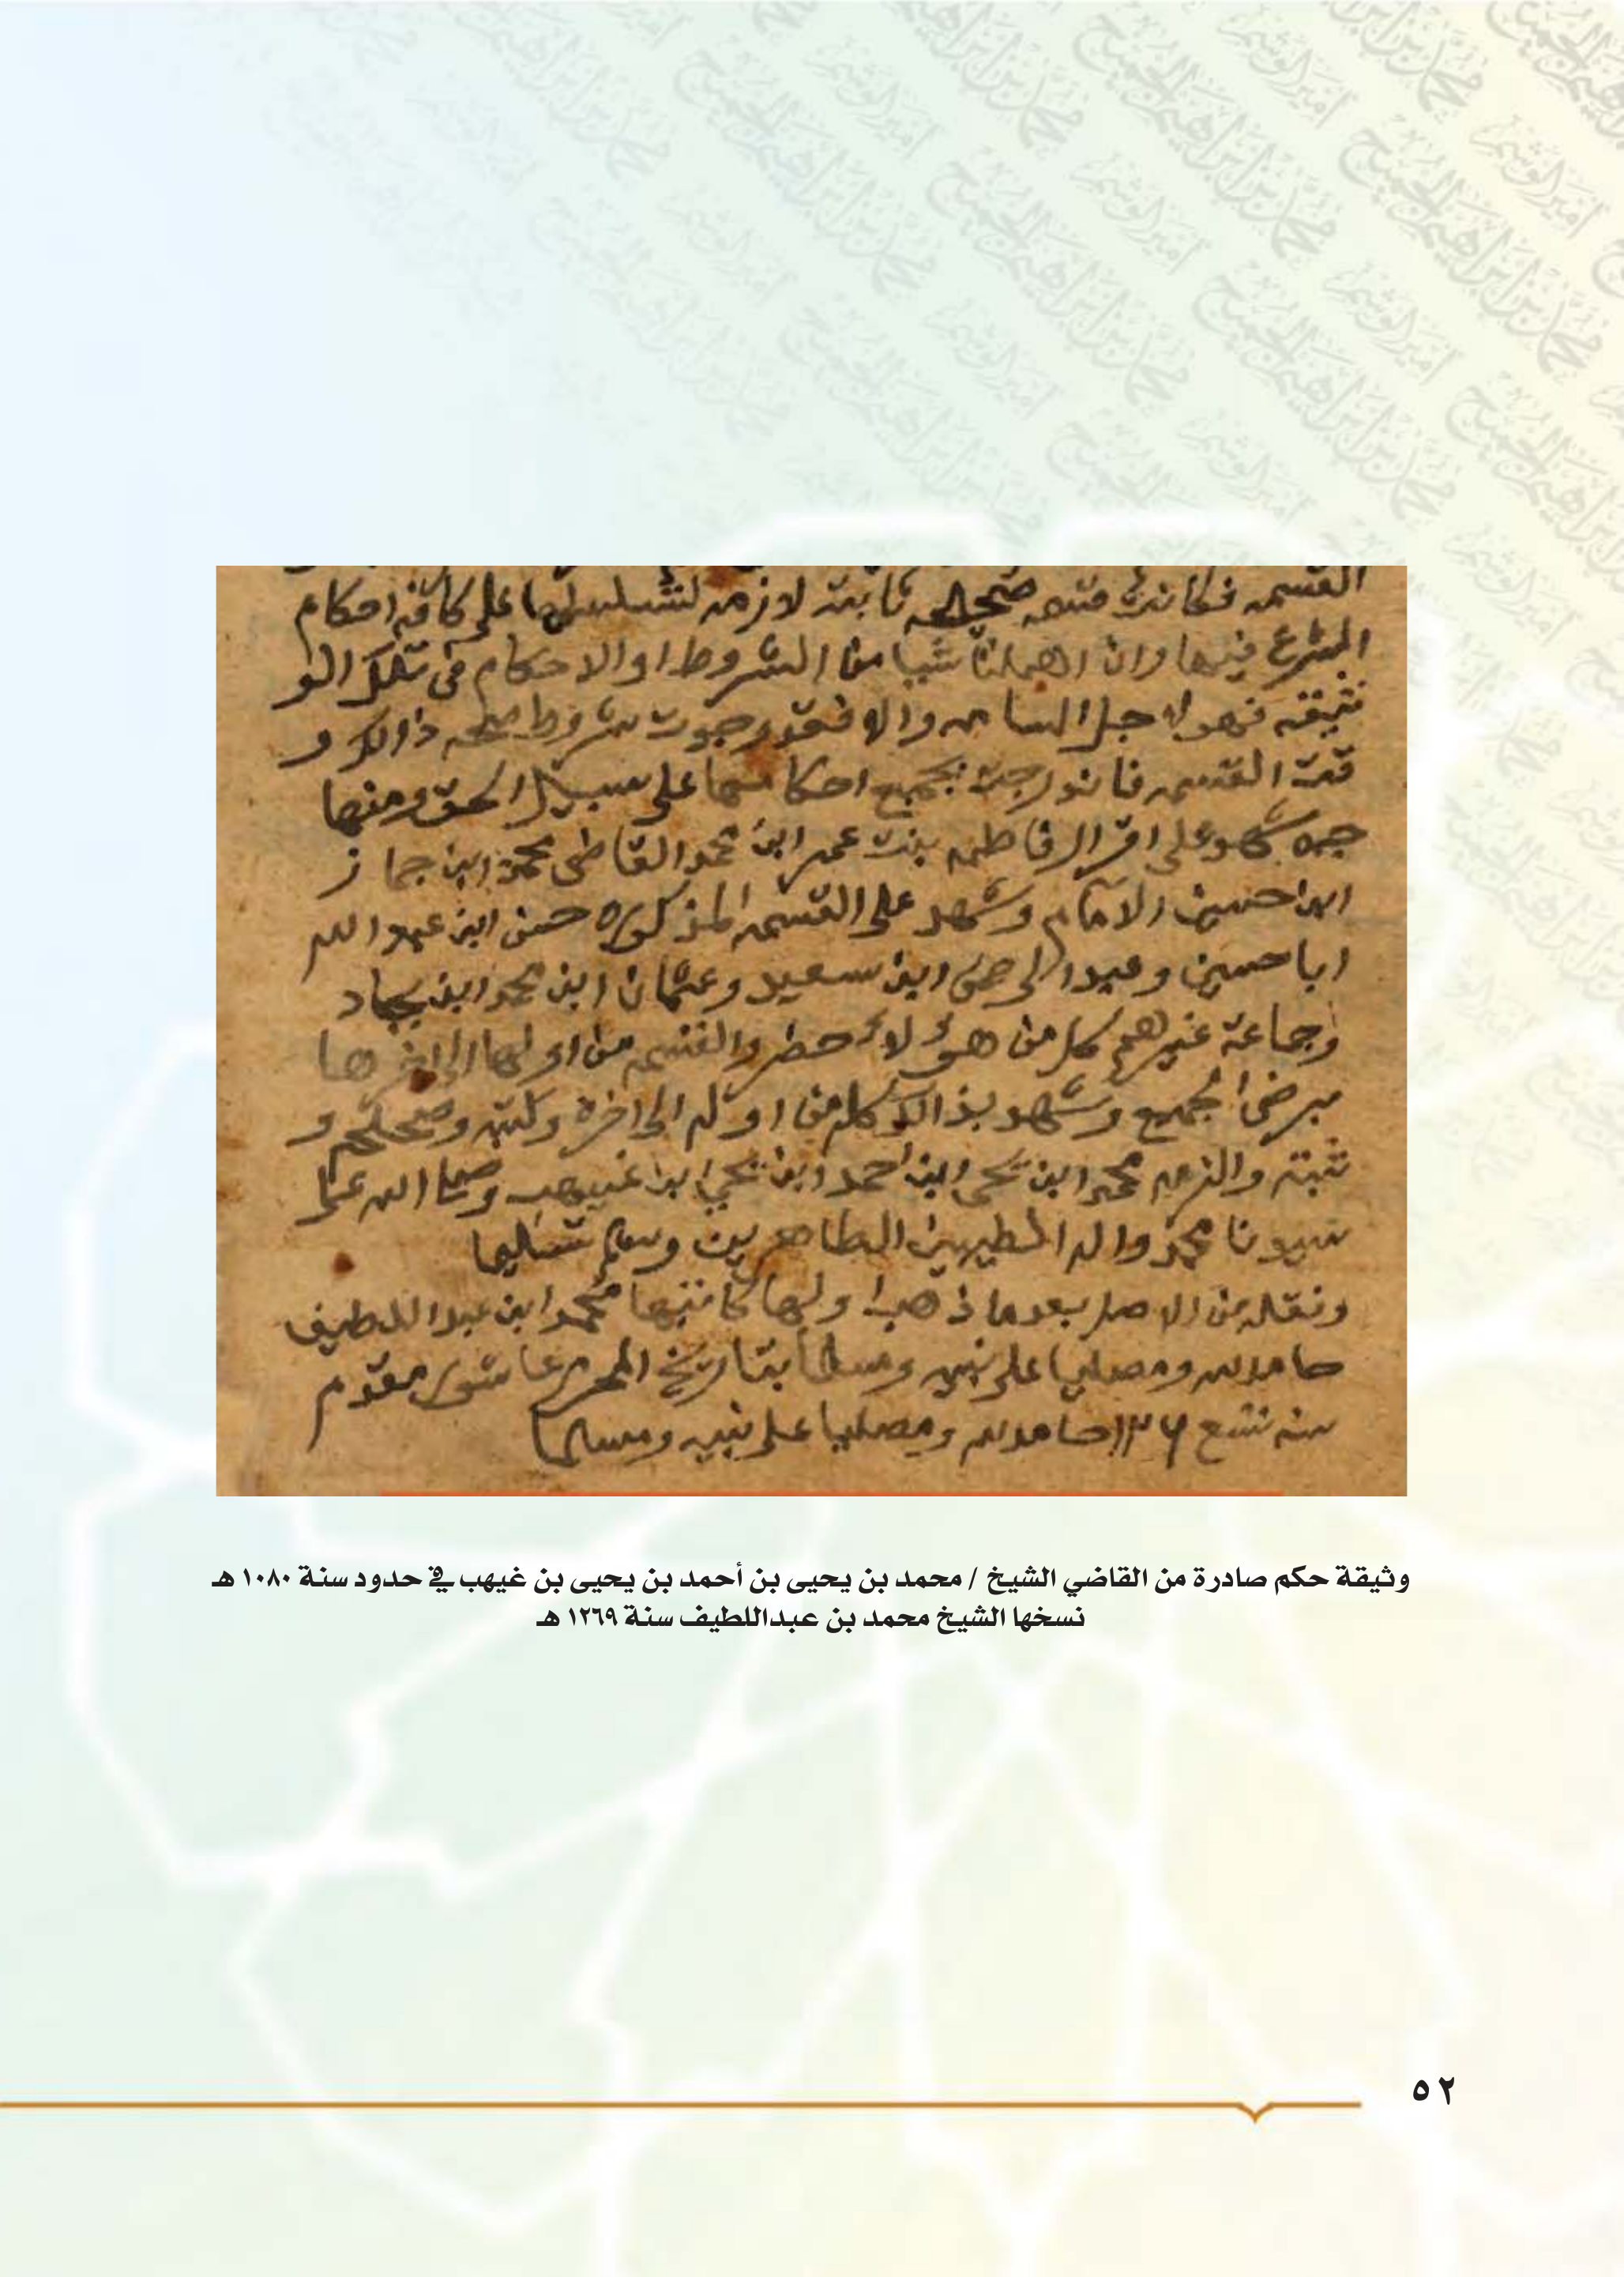 القسمه فكانت قسمه صحيحه ثابته لازمه لتسلسلها على كافة احكام
الشرع فيها وان اهملنا شيا من الشروط او الاحكام في تلك الو
ثيقه فهو لاجل والا فقد وجوت شروط صحه ذالك و
قعت القسمه بجميع احكامها على سبيل الحق ومنها
شهد على اقرار فاطمه بنت عمر ابن محمد القاضي محمد ابن جماز
ابن حسين الامام وشهد على القسمه المذكوره حسن ابن عبدالله
ابا حسين وعبدالرحمن ابن سعيد وعثمان ابن محمد ابن بجاد
وجماعة غيرهم كل من هؤلاء حضر والقسم من اولها الى اخرها
برضى الجميع وشهد بذالك كله من اوله الى اخره وكتبه وصححه و
ثبته والزمه محمد ابن يحيى ابن احمد ابن يحيى ابن غيهب وصلى الله على
سيدنا محمد واله الطيبين الطاهرين وسلم تسليما
ونقله من الاصل بعد ما ذهب اولها كاتبها محمد ابن عبد اللطيف
حامد لله ومصليا على نبيه ومسلما بتاريخ المحرم عاشور مقدم
سنه تسع حامد لله ومصليا على نبيه ومسلما
وثيقة حكم صادرة من القاضي الشيخ / محمد بن يحيى بن أحمد بن يحيى بن غيهب في حدود سنة ١٠٨٠ هـ
نسخها الشيخ محمد بن عبداللطيف سنة ١٢٦٩ هـ
٥٢